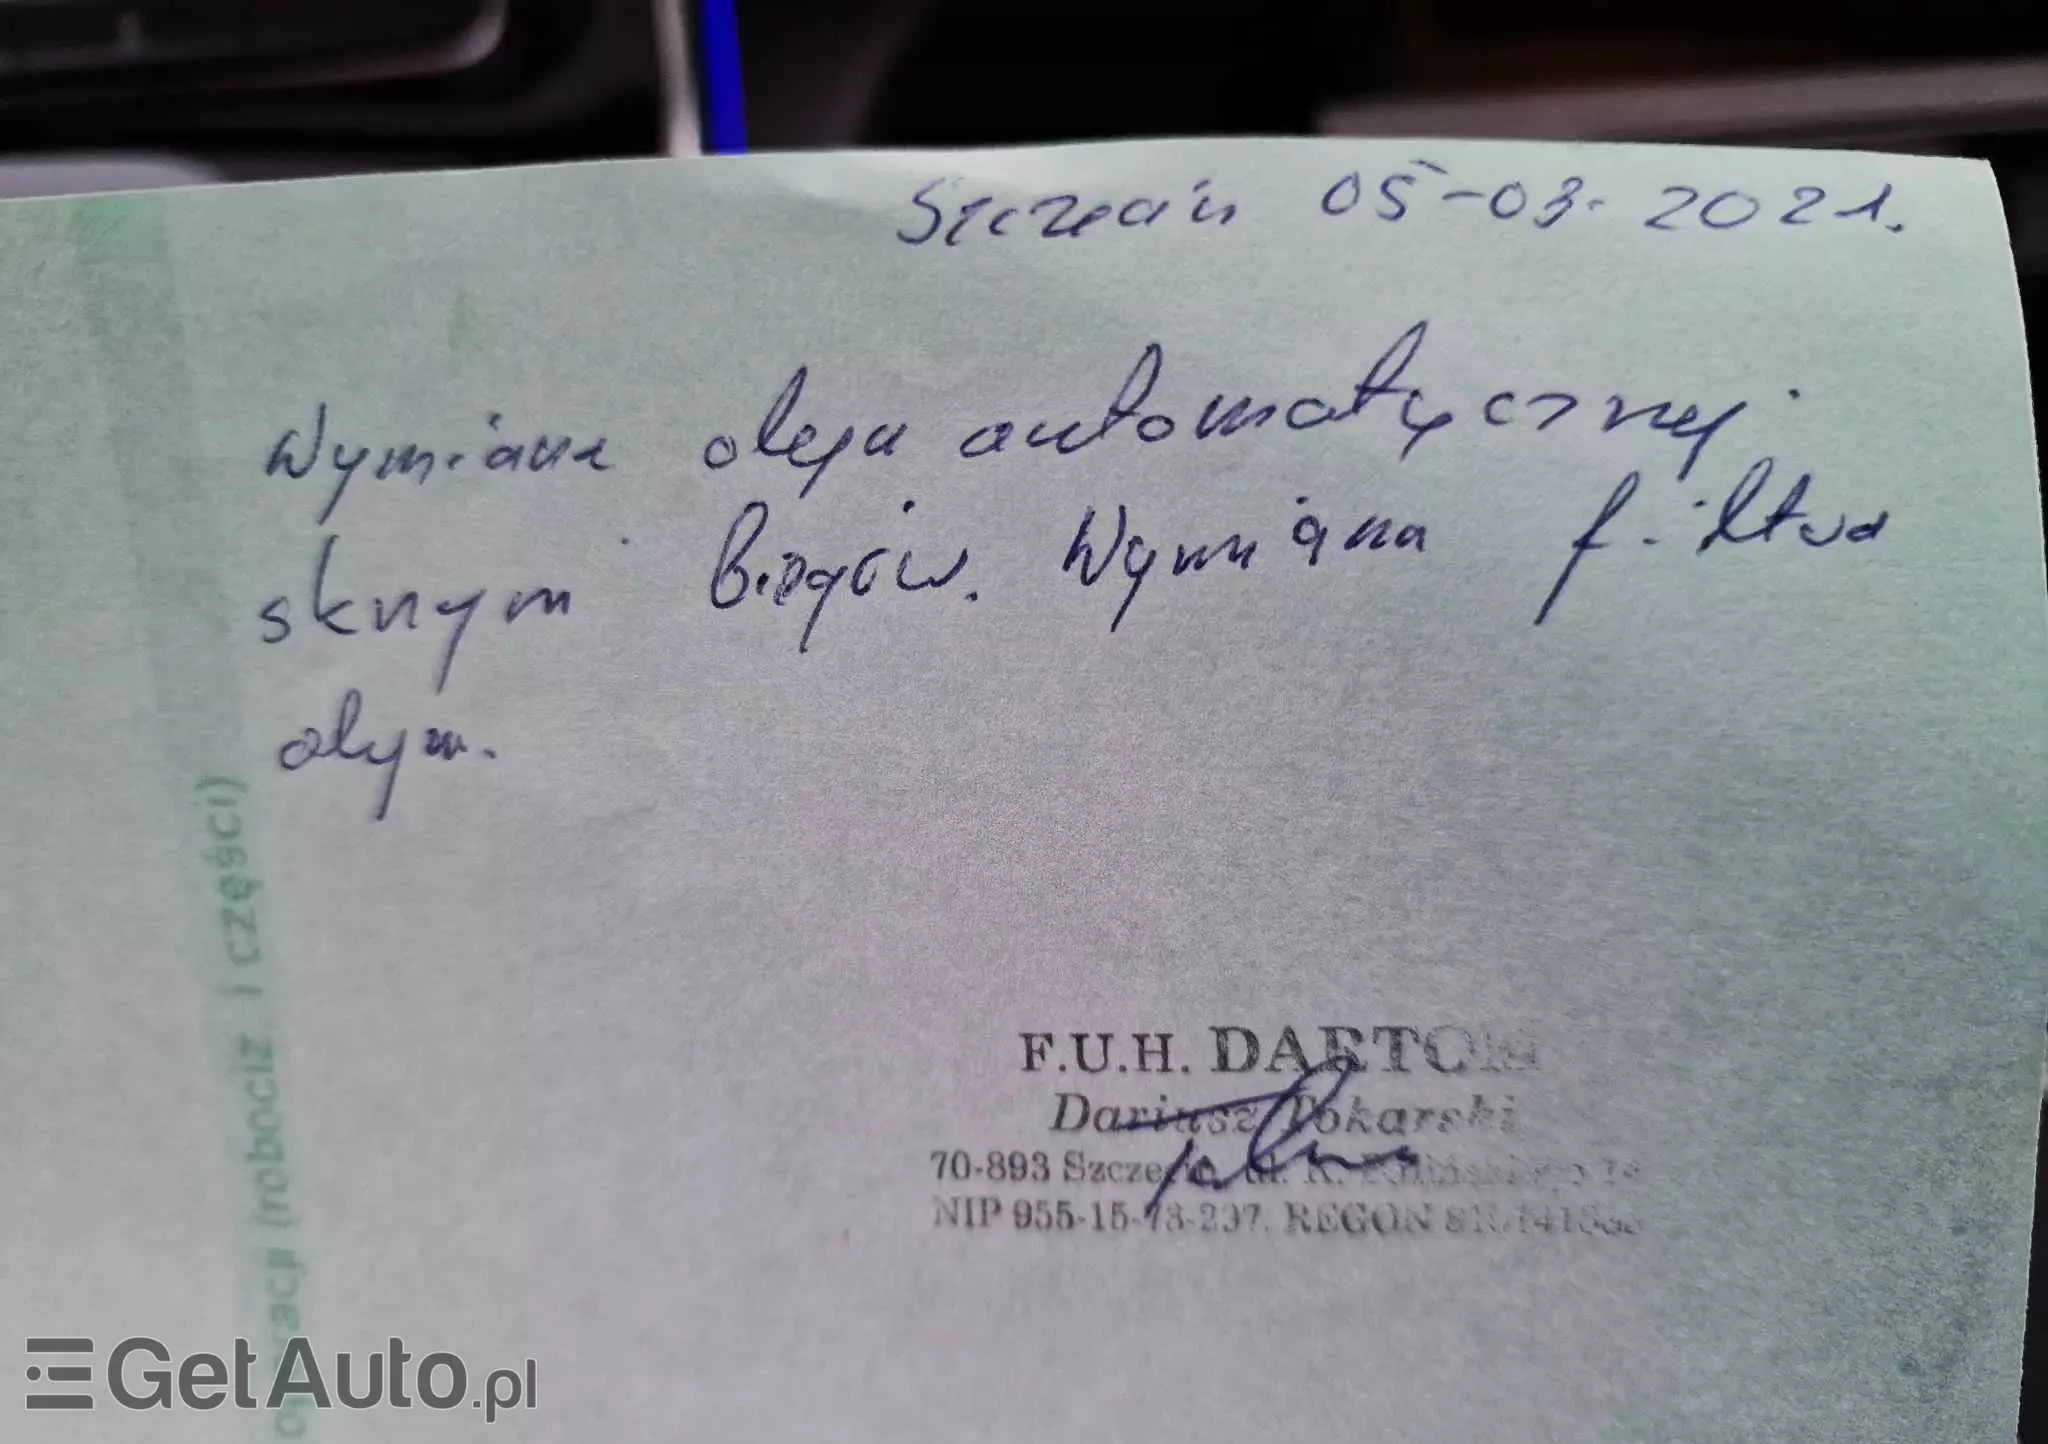 Szczecin 05-03-2021.
Wymiana oleju automatycznej
skrzyni biegów. Wymiana filtra
oleju.
F.U.H. DARTOM
Dariusz Tokarski
70-893 Szczecin, ul. K.
NIP 955-15-73-297. REGON
operacji (robocizna i części)
GetAuto.pl